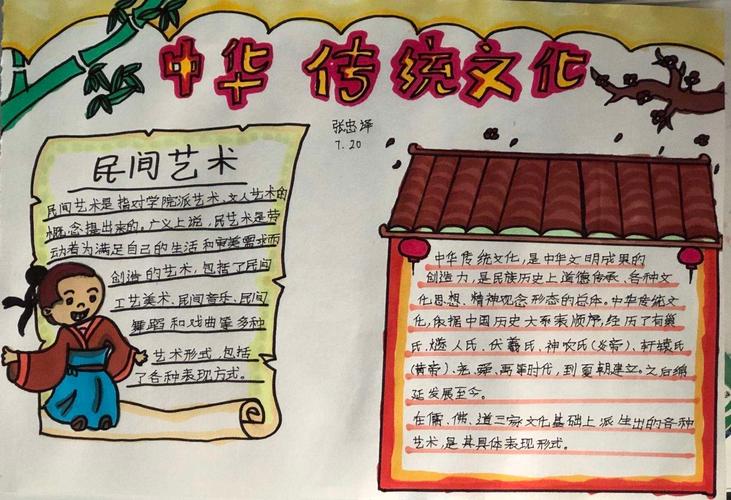 中华传统文化
张忠泽
7.20
民间艺术
民间艺术是指对学院派艺术、文人艺术的
概念提出来的。广义上说，民艺术是劳
动者为满足自己的生活和审美需求而
创造的艺术，包括了民间
工艺美术、民间音乐、民间
舞蹈和戏曲等多种
艺术形式，包括
了各种表现方式。
中华传统文化，是中华文明成果的
创造力，是民族历史上道德传承、各种文
化思想、精神观念形态的总体。中华传统文
化，依据中国历史大系表顺序，经历了有巢
氏、燧人氏、伏羲氏、神农氏（炎帝）、轩辕氏
（黄帝）、尧、舜、禹等时代，到夏朝建立。之后绵
延发展至今。
在儒、佛、道三家文化基础上派生出的各种
艺术，是其具体表现形式。